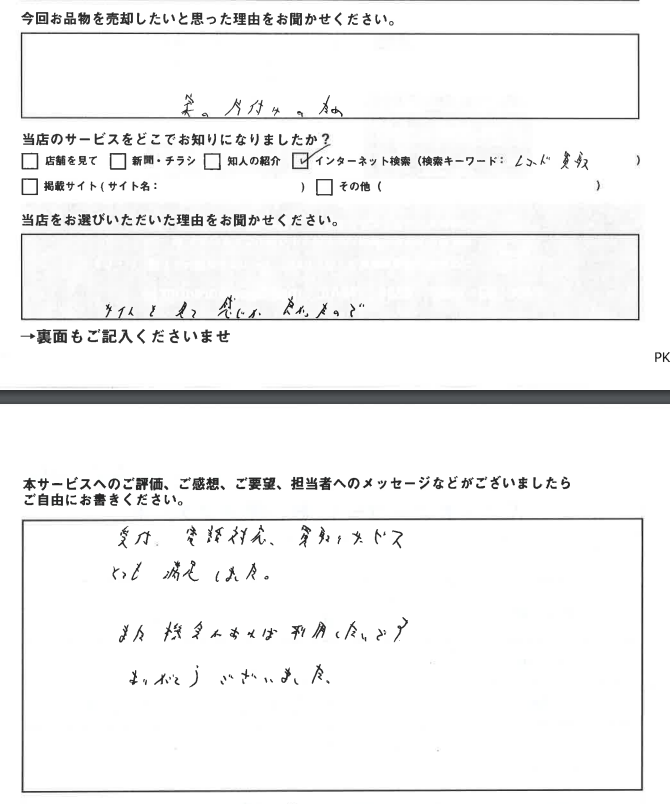 今回お品物を売却したいと思った理由をお聞かせください。
家の片付けのため
当店のサービスをどこでお知りになりましたか？
店舗を見て 新聞・チラシ 知人の紹介 インターネット検索（検索キーワード： レコード 買取 ）
掲載サイト（サイト名： ） その他（ ）
当店をお選びいただいた理由をお聞かせください。
サイトを見て 感じが 良かったので
→裏面もご記入くださいませ
PK
本サービスへのご評価、ご感想、ご要望、担当者へのメッセージなどがございましたら
ご自由にお書きください。
受付、電話対応、買取サービス
とても 満足しました。
また機会があれば利用したいです
ありがとうございました。